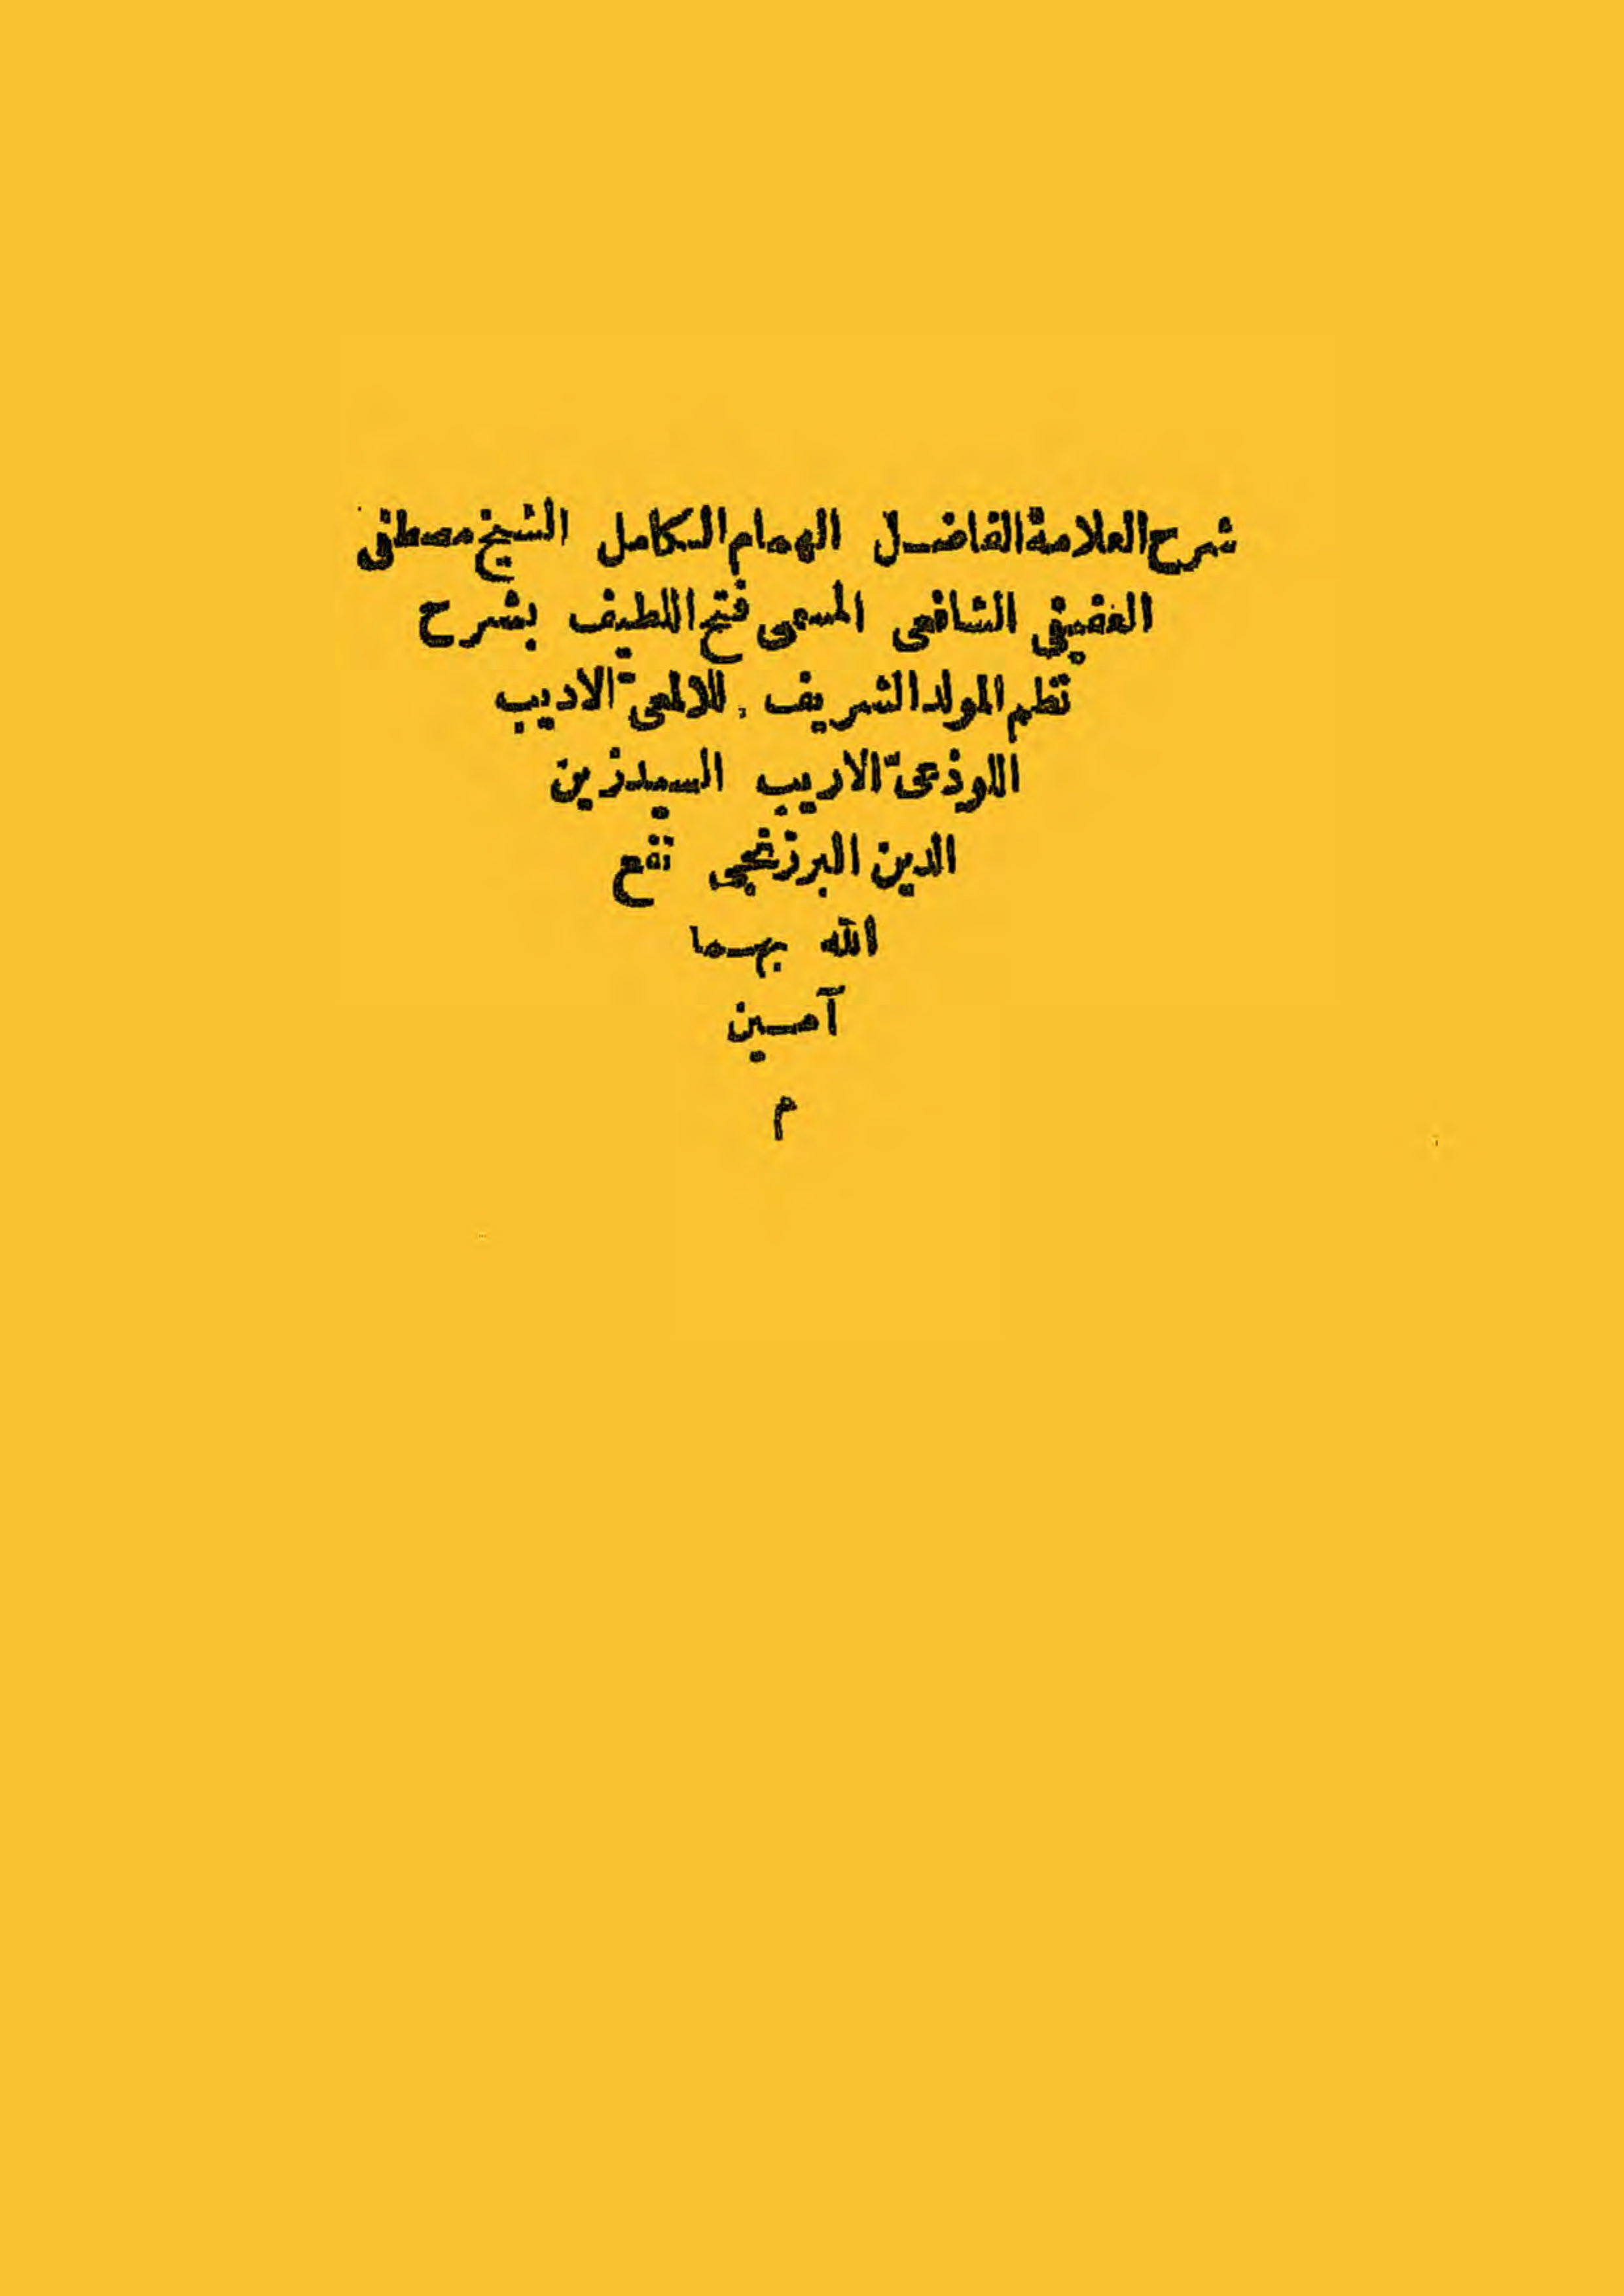 شرح العلامة الفاضل الهمام الكامل الشيخ مصطفى
العفيفى الشافعى المسمى فتح اللطيف بشرح
نظم المولد الشريف للالمعىّ الاديب
اللوذعىّ الاريب السيد زين
الدين البرزنجى نفع
الله بهما
آمين
م